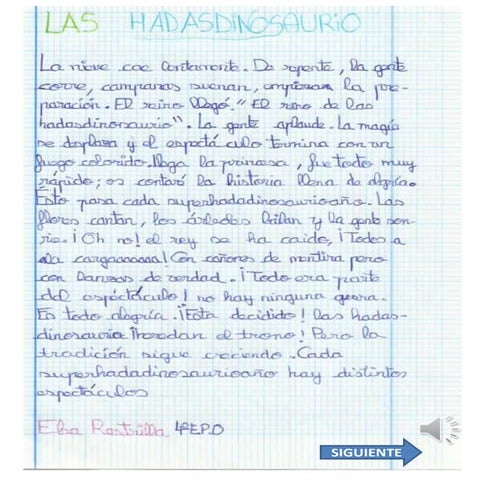 LAS HADASDINOSAURIO
La nieve cae lentamente. De repente, la gente
corre, campanas suenan, empiezan la pre-
paración. El reino llegó. "El reino de las
hadasdinosaurio". La gente aplaude. La magia
se desplaza y el espectáculo termina con un
fuego colorido. Llega la princesa, fue todo muy
rápido; os contaré la historia llena de alegría.
Esto pasa cada superhadadinosaurioaño. Las
flores cantan, los árboles bailan y la gente son-
ríe. ¡Oh no! el rey se ha caido, ¡Todos a
la cargaaaaaaa! Con cañones de mentira pero
con lanzas de verdad. ¡Todo era parte
del espéctáculo! no hay ninguna guerra.
Es todo alegría. ¡Esta decidido! las hadas-
dinosauria ¡heredan el trono! Pero la
tradición sigue creciendo. Cada
superhadadinosaurioaño hay distintos
espectáculos
Elsa 4ºE.P.O
SIGUIENTE